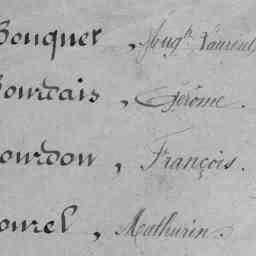 Bouquet, Aug.n Laurent
ourdais, Gérome.
ourdon, François.
ourel, Mathurin.